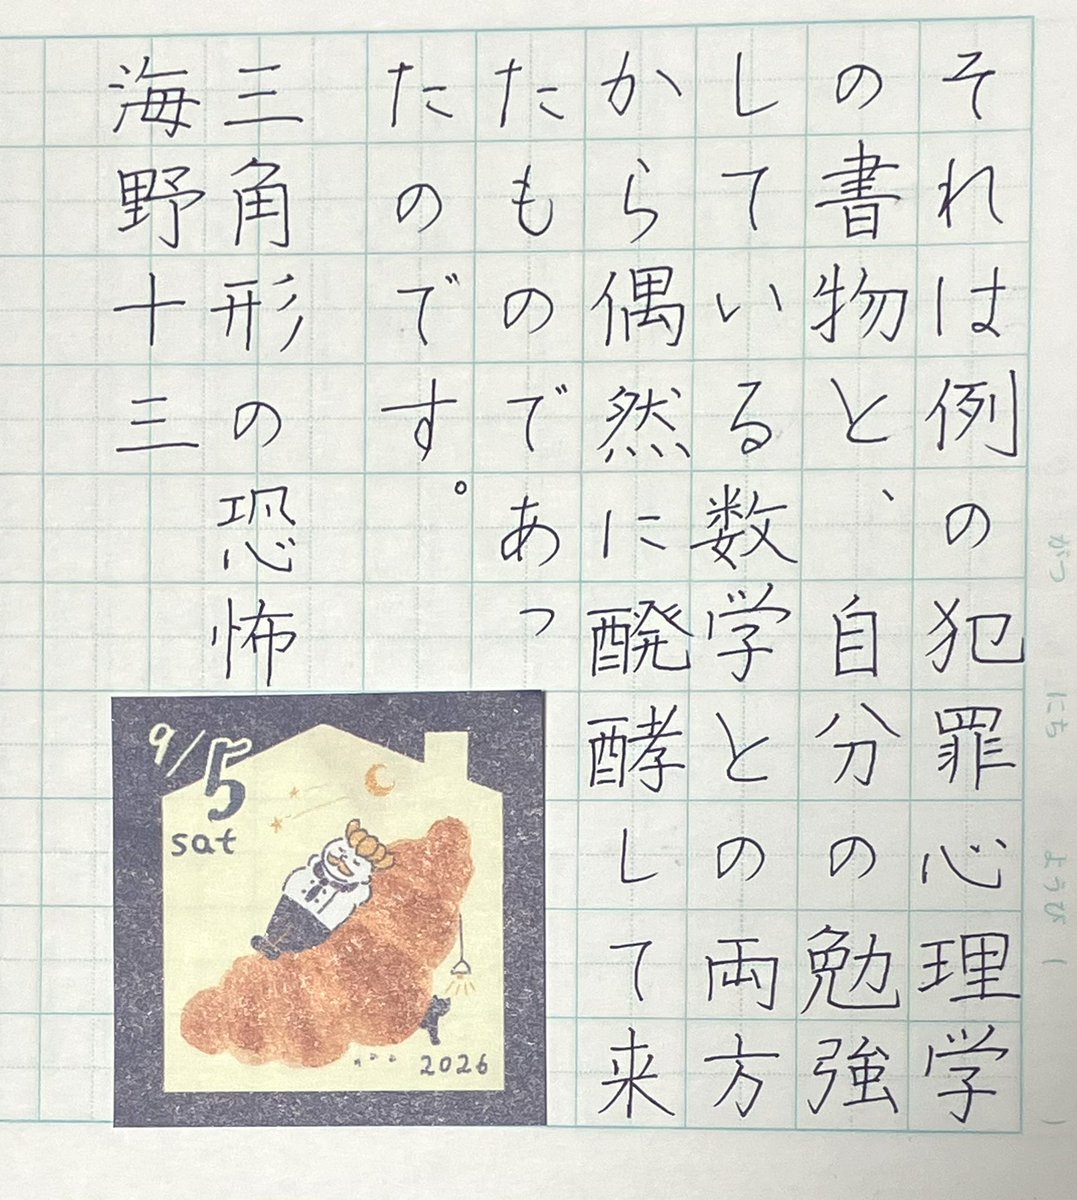 それは例の犯罪心理学
の書物と、自分の勉強
している数学との両方
から偶然に醗酵して来
たものであっ
たのです。
三角形の恐怖
海野十三
9/5
sat
2026
がつ にち ようび